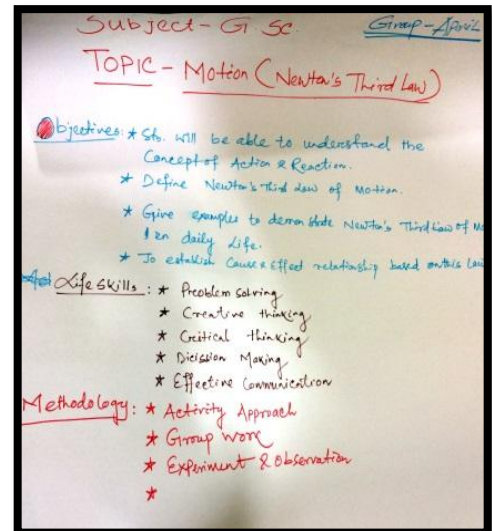 Subject - G. SC. Group - April
TOPIC - Motion (Newton's Third Law)
Objectives: * Sts. will be able to understand the
Concept of Action & Reaction.
* Define Newton's Third Law of Motion.
* Give examples to demonstrate Newton's Third Law of Mo
in daily Life.
* To establish Cause & Effect relationship based on this Law
Life Skills : * Problem solving
* Creative thinking
* Critical thinking
* Dicission Making
* Effective Communication
Methodology: * Activity Approach
* Group work
* Experiment & Observation
*